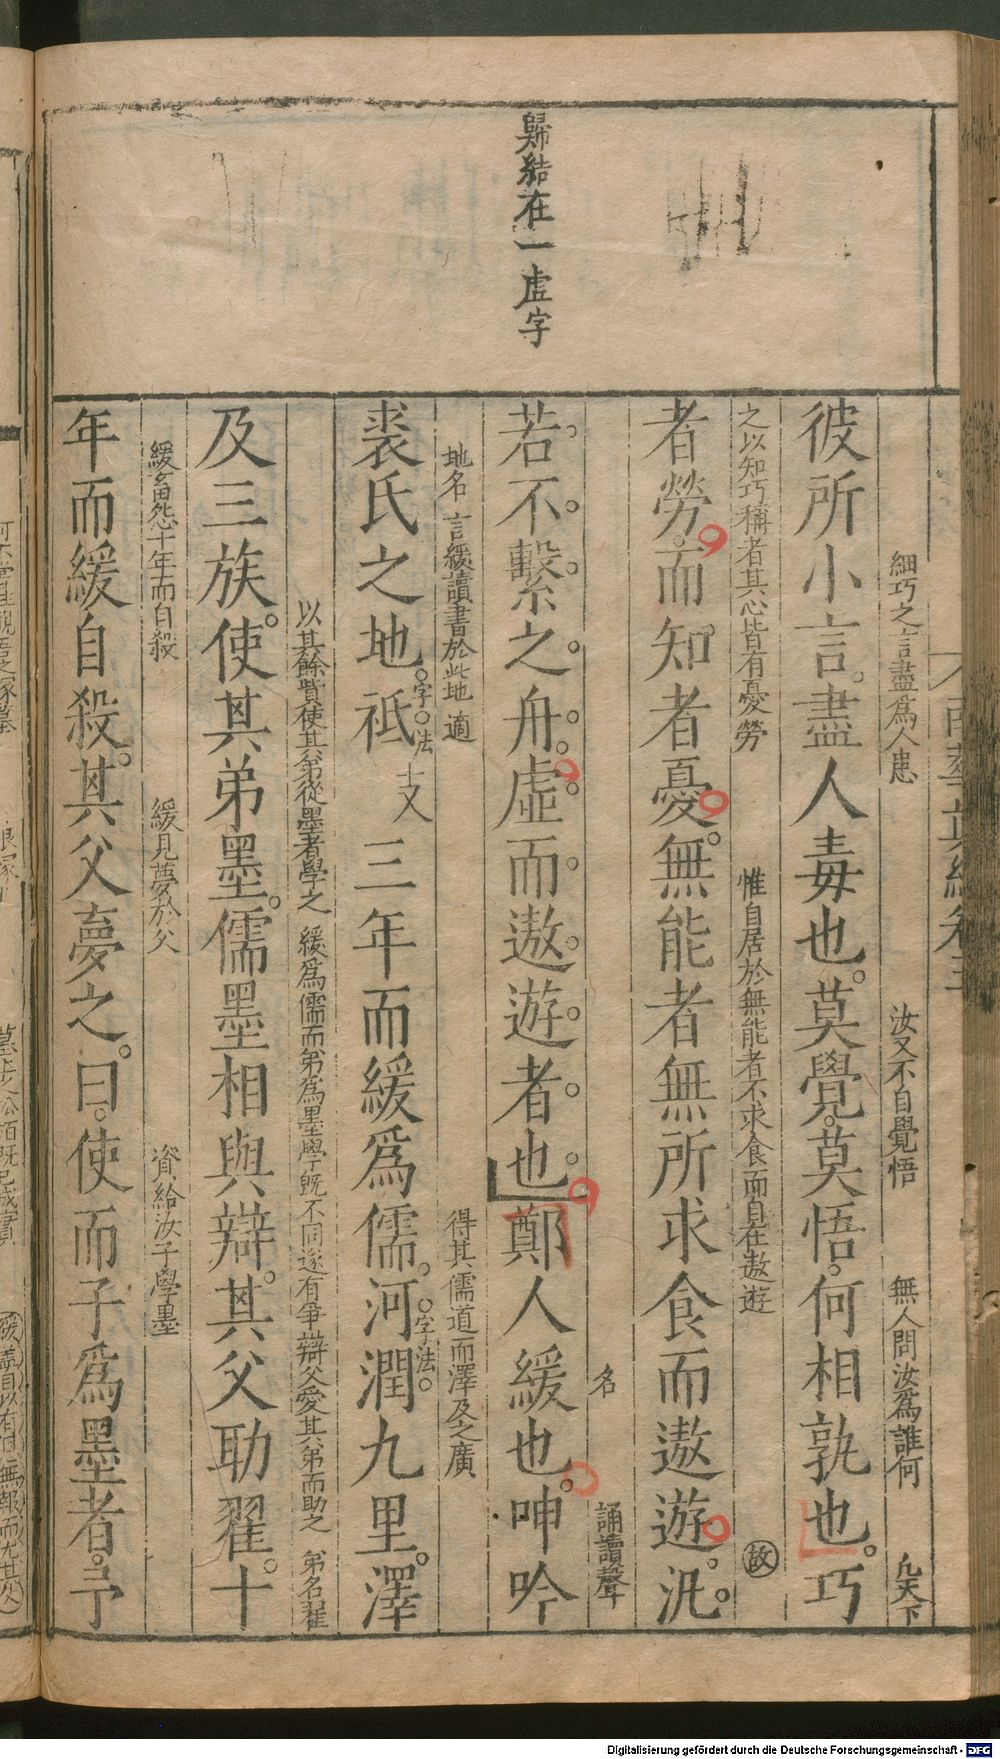 歸結在一虛字
細巧之言盡為人患 汝又不自覺悟 無人問汝為誰何 凢天下
彼所小言盡人毒也莫覺莫悟何相孰也巧
之以知巧稱者其心皆有憂勞 惟自居於無能者不求食而自在遨遊 故
者勞而知者憂無能者無所求食而遨遊汎
名 誦讀聲
若不繫之舟虛而遨遊者也鄭人緩也呻吟
地名 言緩讀書於此地 適 得其儒道而澤及之廣
裘氏之地祇三年而緩為儒河潤九里澤
字法 支 字法
以其餘貲使其弟從墨者學之 緩為儒而弟為墨學既不同遂有爭辯父愛其弟而助之 弟名翟
及三族使其弟墨儒墨相與辯其父助翟十
緩畜怨十年而自殺 緩見夢於父 資給汝子學墨
年而緩自殺其父夢之曰使而子為墨者予
Digitalisierung gefördert durch die Deutsche Forschungsgemeinschaft - DFG